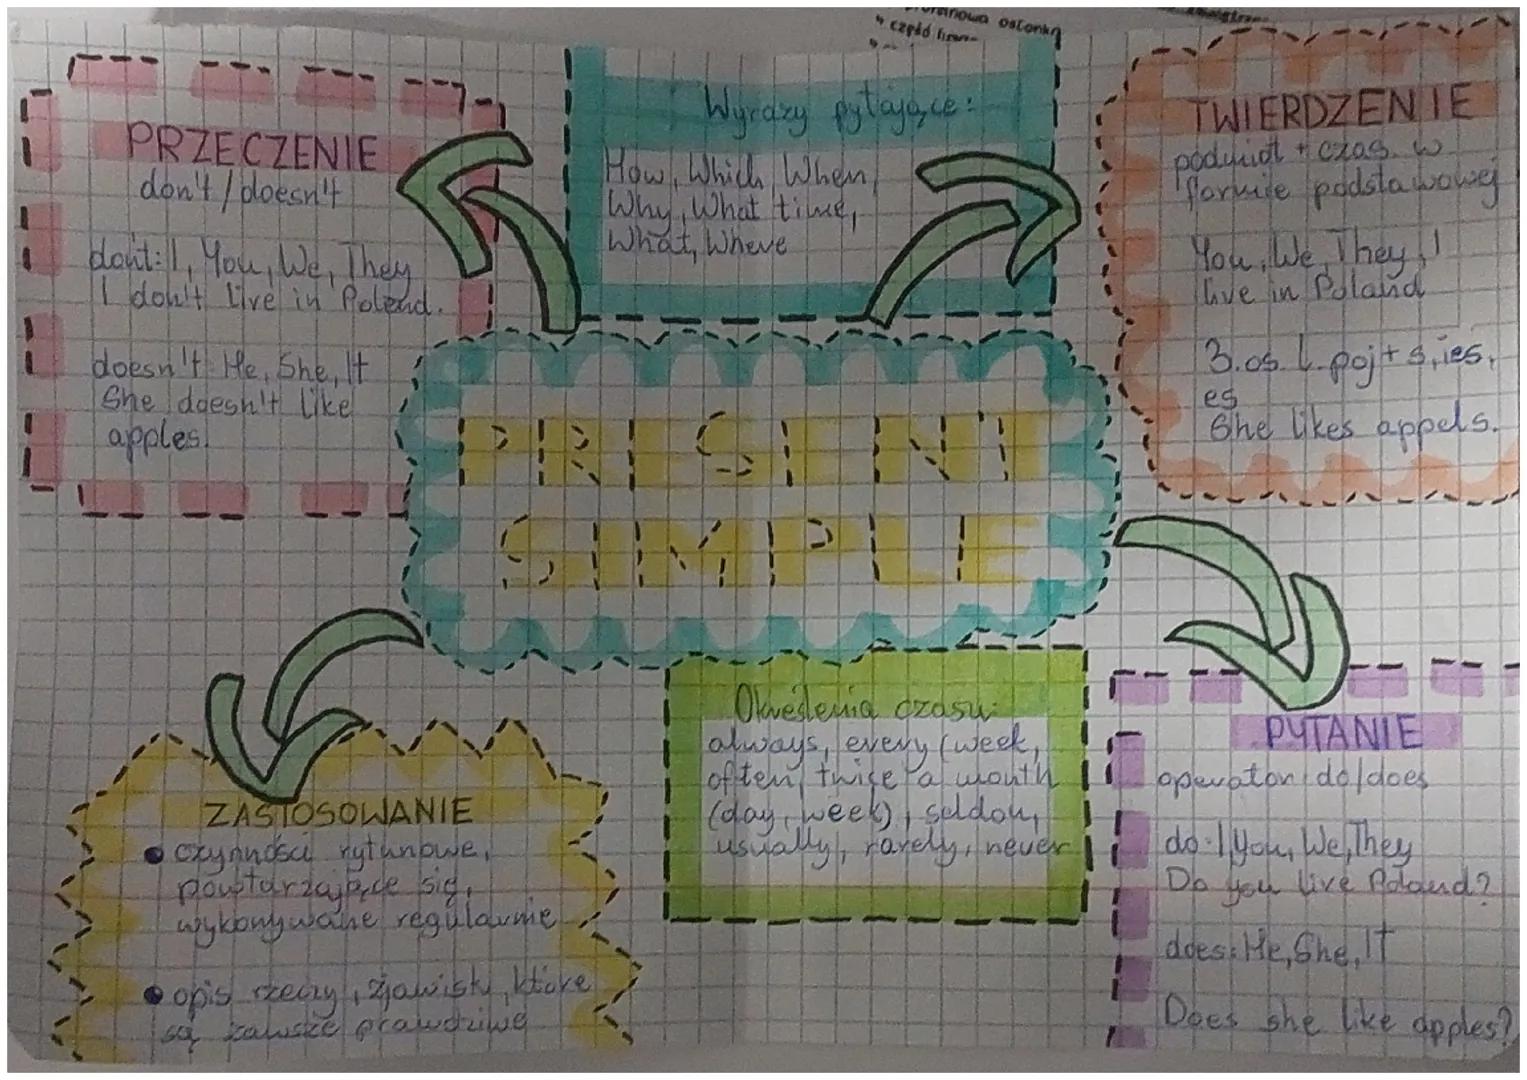 część
PRZECZENIE
don't/doesn't
don't: I, You, We, They
I don't live in Polend.
doesn't: He, She, It
She doesn't like
apples.
Wyrazy pytające:
How, Which, When,
Why, What time,
What, Where
TWIERDZENIE
podmiot + czas. w
formie podstawowej
You, We, They, I
live in Poland
3. os. l. poj + s, ies,
es
She likes appels.
PRESENT
SIMPLE
ZASTOSOWANIE
• czynności rytunowe,
powtarzające się,
wykonywane regularnie
• opis rzeczy, zjawisk, które
są zawsze prawdziwe
Określenia czasu:
always, every (week,
often, twice a month
(day, week), seldon,
usually, rarely, never
PYTANIE
operator: do/does
do: I, you, We, They
Do you live Poland?
does: He, She, It
Does she like apples?